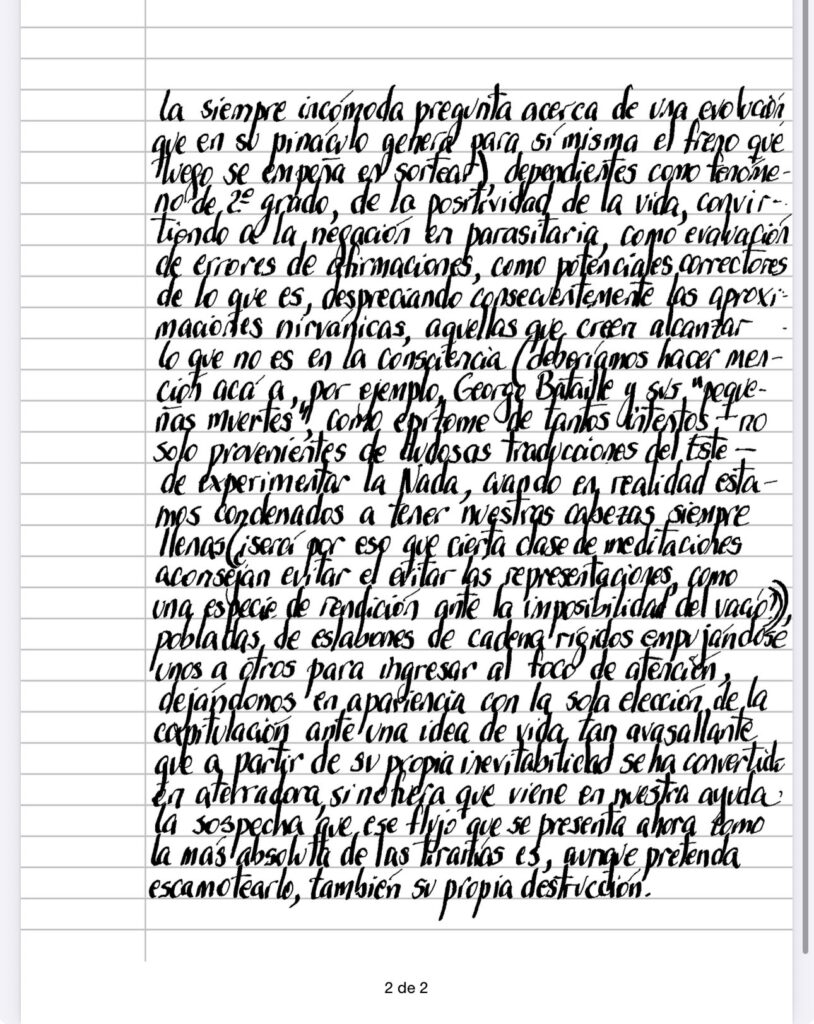 la siempre incómoda pregunta acerca de una evolución
que en su pináculo genera para sí misma el freno que
luego se empeña en sortear), dependientes como fenóme-
no de 2º grado, de la positividad de la vida, convir-
tiendo a la negación en parasitaria, como evaluación
de errores de afirmaciones, como potenciales correctores
de lo que es, despreciando consecuentemente las aproxi-
maciones nirvánicas, aquellas que creen alcanzar
lo que no es en la consciencia (deberíamos hacer men-
ción acá a, por ejemplo, George Bataille y sus "peque-
ñas muertes", como epítome de tantos intentos —no
solo provenientes de dudosas traducciones del Este—
de experimentar la Nada, cuando en realidad esta-
mos condenados a tener nuestras cabezas siempre
llenas (¿será por eso que cierta clase de meditaciones
aconsejan evitar el evitar las representaciones, como
una especie de rendición ante la imposibilidad del vacío?)),
pobladas, de eslabones de cadena rígidos empujándose
unos a otros para ingresar al foco de atención,
dejándonos en apariencia con la sola elección de la
capitulación ante una idea de vida tan avasallante
que a partir de su propia inevitabilidad se ha convertido
en aterradora, si no fuera que viene en nuestra ayuda
la sospecha que ese flujo que se presenta ahora como
la más absoluta de las tiranías es, aunque pretenda
escamotearlo, también su propia destrucción.
2 de 2